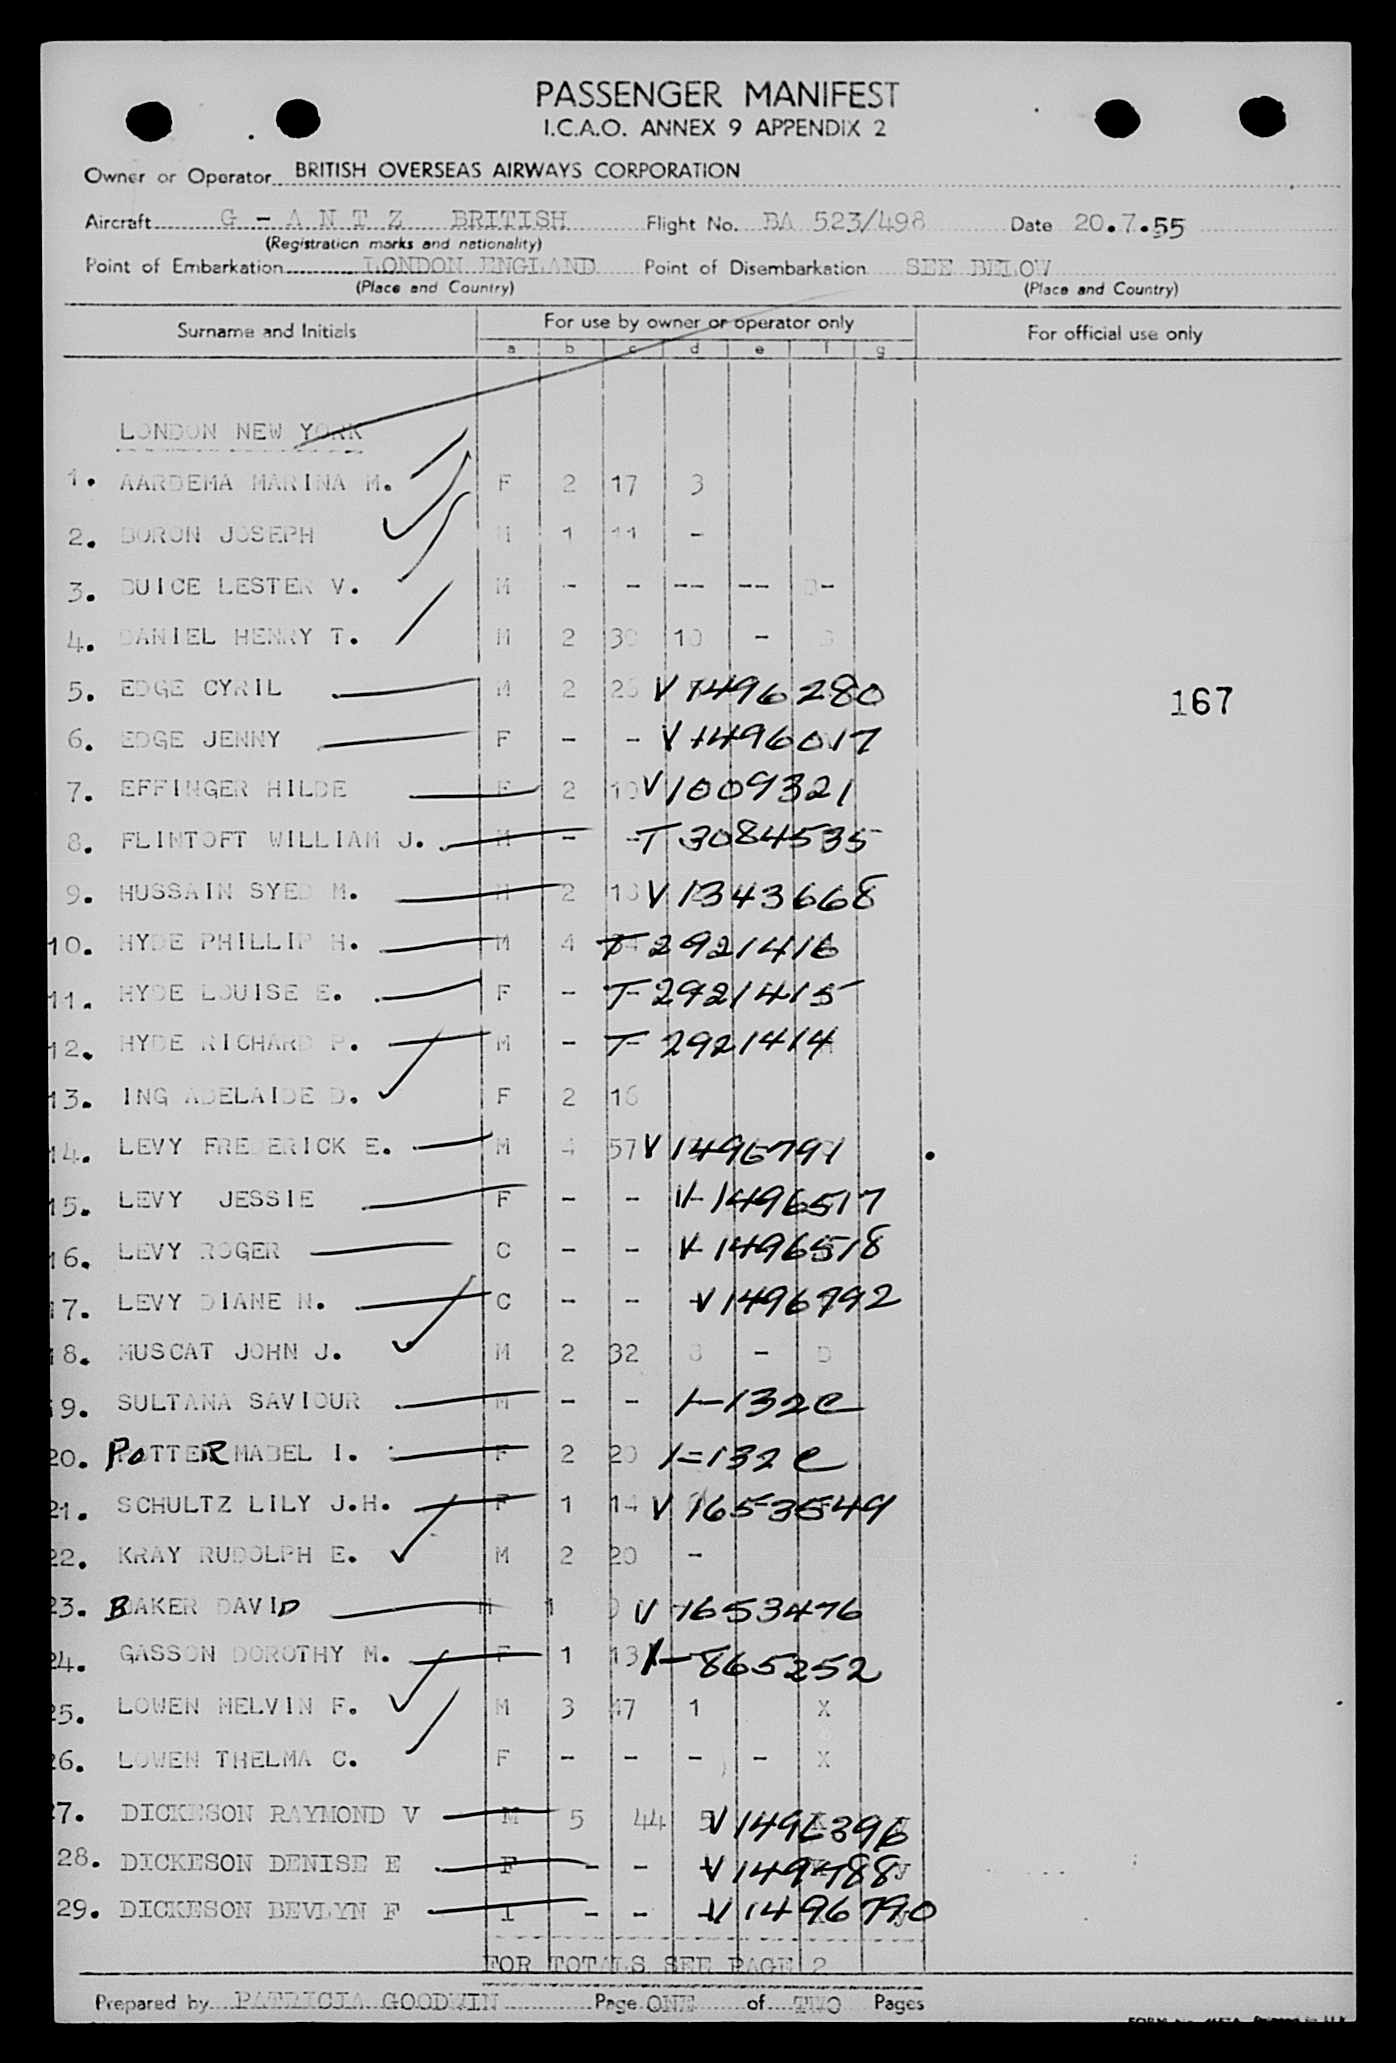 PASSENGER MANIFEST
I.C.A.O. ANNEX 9 APPENDIX 2
Owner or Operator BRITISH OVERSEAS AIRWAYS CORPORATION
Aircraft G - A N T Z BRITISH Flight No. BA 523/498 Date 20.7.55
(Registration marks and nationality)
Point of Embarkation LONDON ENGLAND Point of Disembarkation SEE BELOW
(Place and Country) (Place and Country)
Surname and Initials For use by owner or operator only For official use only
a b c d e f g
LONDON NEW YORK
1. AARDEMA MARINA M. F 2 17 3
2. BORON JOSEPH M 1 11 -
3. BUICE LESTER V. M - - -- -- -
4. DANIEL HENRY T. M 2 30 10 -
5. EDGE CYRIL M 2 V 1496280
167
6. EDGE JENNY F - - V 1496017
7. EFFINGER HILDE F 2 10 V 1009321
8. FLINTOFT WILLIAM J. M - - T 3084535
9. HUSSAIN SYED M. M 2 V 1343668
10. HYDE PHILLIP H. M 4 T 2921416
11. HYDE LOUISE E. F - T 2921415
12. HYDE RICHARD P. M - T 2921414
13. ING ADELAIDE D. F 2 16
14. LEVY FREDERICK E. M 4 57 V 1496791
15. LEVY JESSIE F - - V 1496517
16. LEVY ROGER C - - V 1496518
17. LEVY DIANE N. C - - V 1496792
18. MUSCAT JOHN J. M 2 32 3 - D
19. SULTANA SAVIOUR M - - 1-132C
20. POTTER MABEL I. F 2 20 1=132 C
21. SCHULTZ LILY J.H. F 1 14 V 1653549
22. KRAY RUDOLPH E. M 2 20 -
23. BAKER DAVID M 1 V 1653476
24. GASSON DOROTHY M. F 1 13 V-865252
25. LOWEN MELVIN F. M 3 47 1 X
26. LOWEN THELMA C. F - - - - X
27. DICKESON RAYMOND V M 5 44 5 V 1496396
28. DICKESON DENISE E F - - V 149788
29. DICKESON BEVLYN F I - - V 1496790
FOR TOTALS SEE PAGE 2
Prepared by PATRICIA GOODWIN Page ONE of TWO Pages